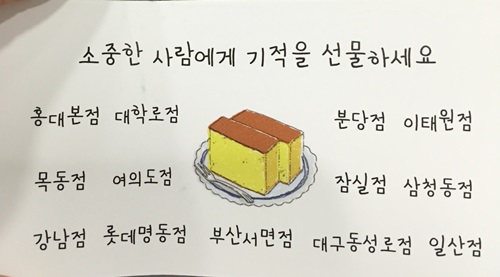 소중한 사람에게 기적을 선물하세요
홍대본점 대학로점 분당점 이태원점
목동점 여의도점 잠실점 삼청동점
강남점 롯데명동점 부산서면점 대구동성로점 일산점